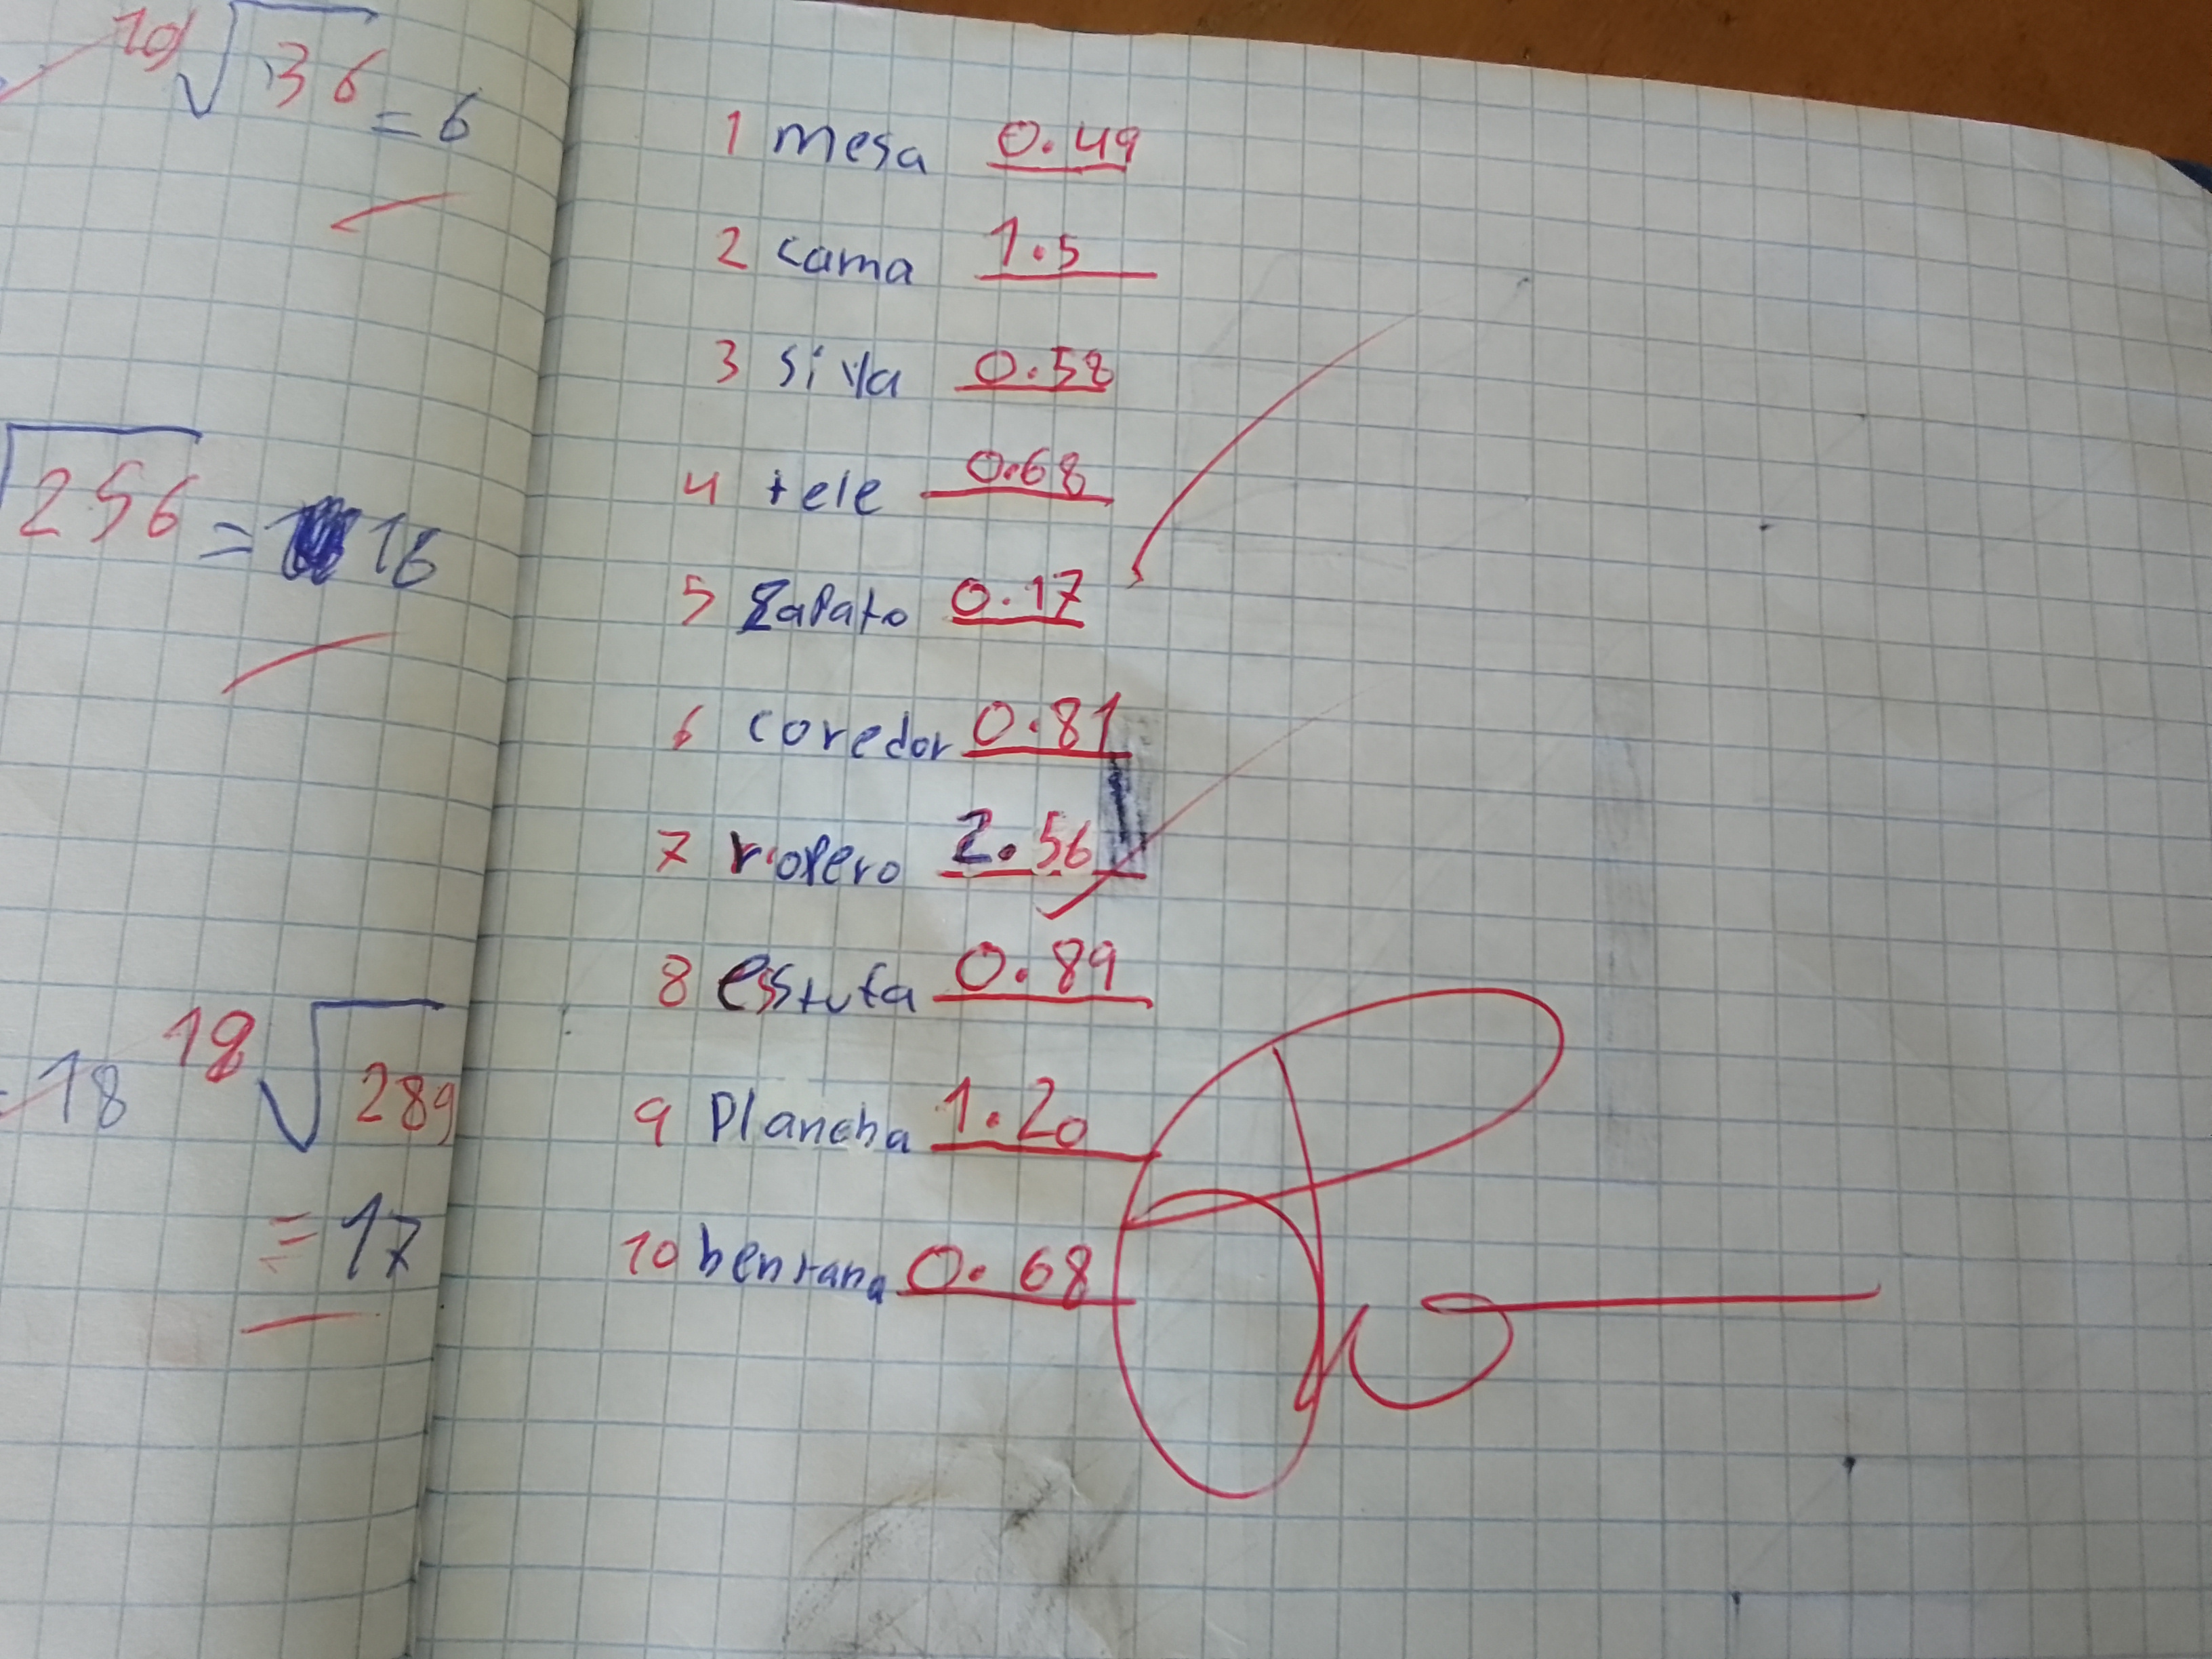 10) √36 = 6
√256 = 16
= 18
18 √289
= 17
1 mesa 0.49
2 cama 1.5
3 silla 0.58
4 tele 0.68
5 Zapato 0.17
6 coredor 0.81
7 ropero 2.56
8 esstufa 0.89
9 Plancha 1.20
10 bentana 0.68